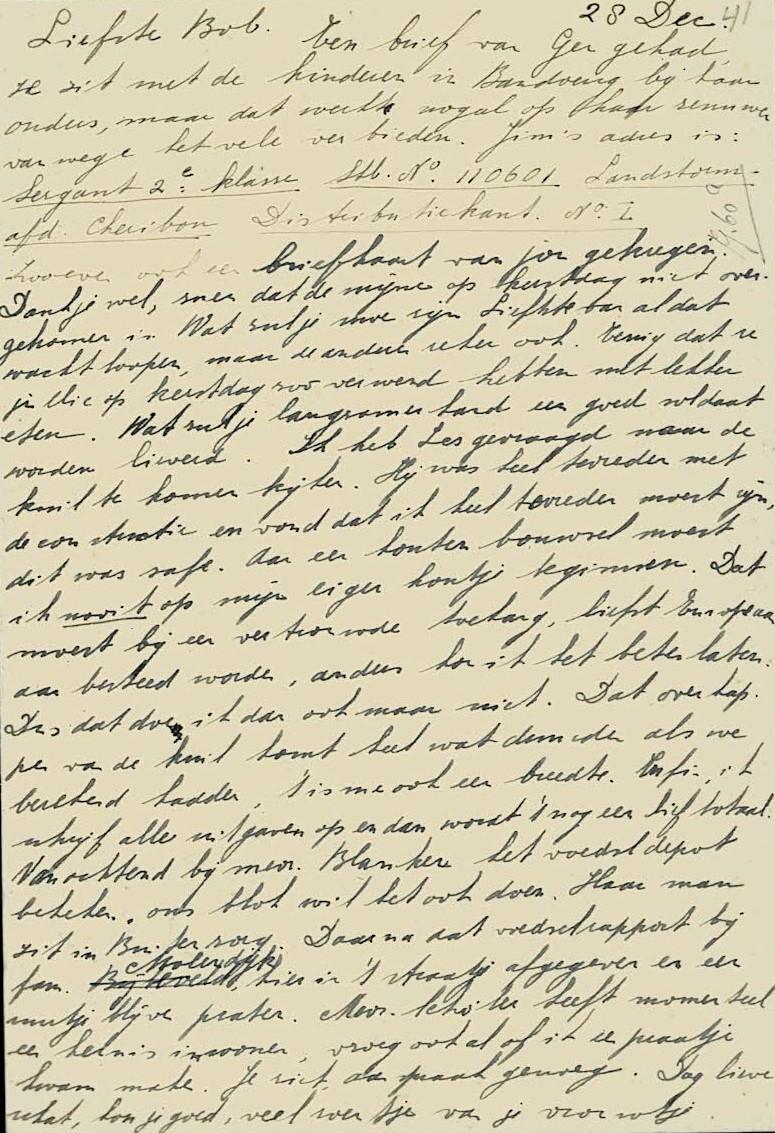 28 Dec. 41
Liefste Bob. Een brief van Ger gehad,
ze zit met de kinderen in Bandoeng bij haar
ouders, maar dat werkt nogal op haar zenuwen
van wege het vele verbieden. Jim's adres is:
Sergant 2e klasse Stb. No. 110601 Landstorm
afd. Cheribon Distributiekant. No. I
ook een briefkaart van jou gekregen.
Dankje wel, sneu dat de mijne op kerstdag niet over-
gekomen is. Wat zul je moe zijn Liefste van al dat
wacht loopen, maar de anderen zeker ook. Eenig dat ze
jullie op kerstdag zoo verwend hebben met lekker
eten. Wat zul je langzamerhand een goed soldaat
worden lieverd. Ik heb Les gevraagd naar de
kuil te komen kijken. Hij was heel tevreden met
de constructie en vond dat ik heel tevreden moest zijn,
dit was safe. Aan een houten bouwsel moest
ik nooit op mijn eigen houtje beginnen. Dat
moest bij een vertrouwde toekang, liefst Europeaan
aan besteed worden, anders kon ik het beter laten.
Dus dat doe ik dan ook maar niet. Dat overkap-
pen van de kuil komt heel wat duurder als we
berekend hadden, 't is me ook een breedte. Enfin, ik
schrijf alle uitgaven op en dan wordt 't nog een lief totaal.
Vanochtend bij mevr. Blankers het voedseldepot
bekeken, ons blok wil het ook doen. Haar man
zit in Buitenzorg. Daarna dat voedselrapport bij
fam. Molendijk, hier in 't straatje afgegeven en een
uurtje blijven praten. Mevr. Scholte heeft momenteel
een kennis inwonen, vroeg ook al of ik een praatje
kwam maken. Je ziet, aanspraak genoeg. Dag lieve
schat, hou je goed, veel van je vrouwtje.